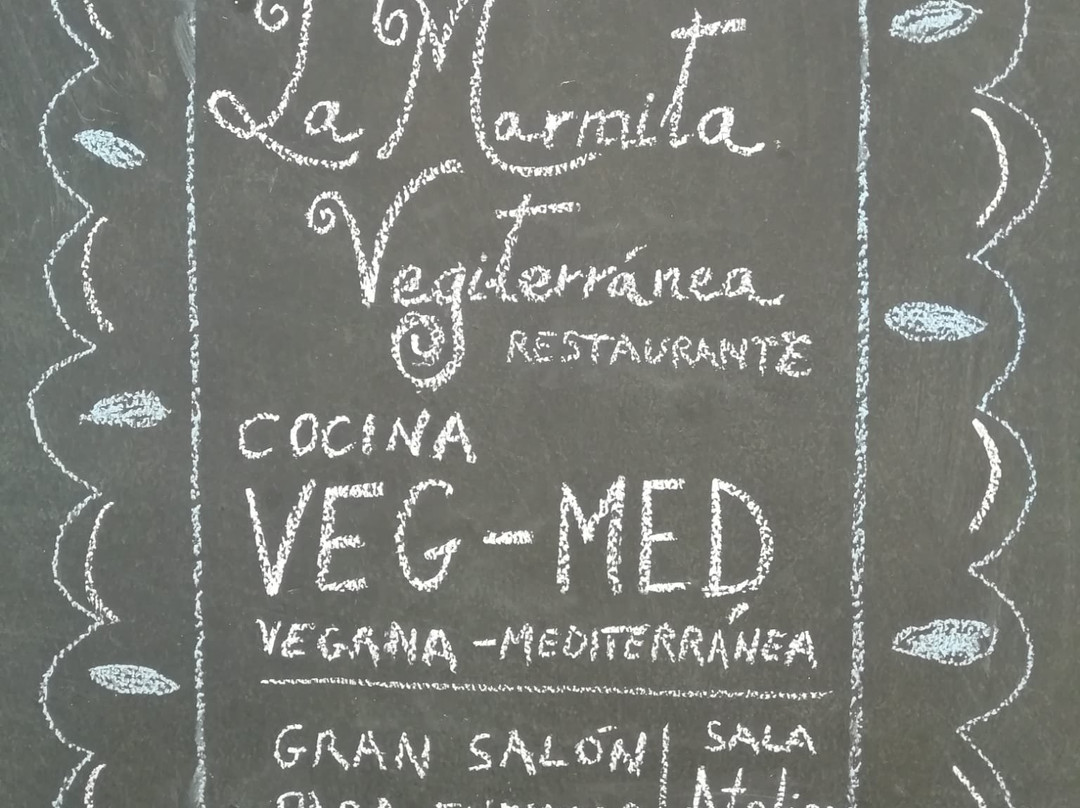 La Marmita
Vegiterránea
RESTAURANTE
COCINA
VEG-MED
VEGANA-MEDITERRÁNEA
GRAN SALÓN
SALA